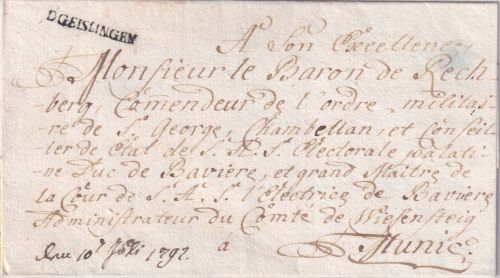 D GEISLINGEN
A Son Excellence,
Monsieur le Baron de Rech-
-berg, Comendeur de l'ordre militai-
re de St. George, Chambellan, et Conseil-
ler de Etat de S. A. S. Electorale palati-
ne Duc de Baviere, et grand Maitre de
la Cour de S. A. S. l'Electrice de Baviere
Administrateur du Comte de Wiesensteig
à Munic.
den 10t Julii 1792.